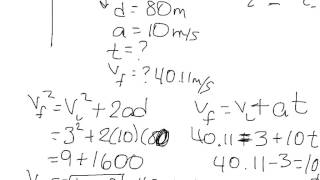 d = 80m
a = 10m/s
t = ?
Vf = ? 40.11m/s
Vf² = Vi² + 2ad
= 3² + 2(10)(80
= 9 + 1600
Vf = Vi + at
40.11 = 3 + 10t
40.11 - 3 = 10